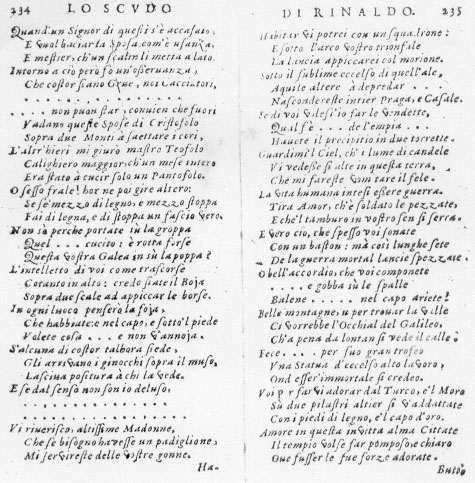 234 LO SCVDO
Quand'un Signor di questi s'è accasato,
E vuol baciar la Sposa com'è usanza,
E mestier, ch'un scalin li metta a lato.
Intorno a ciò però fo un'osseruanza,
Che costor siano Grue, noi Cacciatori,
. . . . . . . . . . . .
. . . . non puon star: conuien che fuori
Vadano queste Spose di Cristofolo
Sopra due Monti à saettare i cori,
L'altr'hieri mi giurò mastro Teofolo
Calighero maggior, ch'un mese intero
Era stato à cucir solo un Pantofolo.
O sesso frale! hor ne poi gire altero:
Se se' mezzo di legno, e mezzo stoppa
Fai di legna, e di stoppa un fascio vero.
Non sò perche portate sù la groppa
Quel . . . cucito: è rotta forse
Questa vostra Galea in sù la poppa?
L'intelletto di voi come trascorse
Cotanto in alto: credo siate il Boja
Sopra due scale ad appiccar le borse.
In ogni luoco penserò la foja,
Che habbiate: e nel capo, e sotto'l piede
Volete cosa . . . e non v'annoja.
S'alcuna di costor talhora siede,
Gli arrivano i ginocchi sopra il muso,
Lasciua positura à chi la vede.
E se dal senso non son io deluso,
. . . . . . . . . . . .
. . . . . . . . . . . .
Vi riuerisco, altissime Madonne,
Che s'è bisogno havesse un padiglione,
Mi servireste delle vostre gonne.
Ha-
DI RINALDO. 235
Habitar vi potrei con un squadrone:
E sotto l'arco vostro trionfale
La lancia appiccarei col morione.
Sotto il sublime eccelso di quell'ale,
Aquile altere à depredar . . . .
Nascondereste intier Praga, e Casale.
Se di voi volessi'io far le vendette,
Qual s'è . . . dell'empia . . .
Hauete il precipitio in due torrette.
Guardimi'l Ciel, ch'i lume di candele
Vi vedesse sì alte in questa terra,
Che mi fareste vomitare il fele.
La vita humana intesi essere guerra.
Tira Amor, ch'è soldato le pezzate,
E ch'el tamburo in vostro sen si serra.
E vero ciò, che spesso voi sonate
Con un baston: mà così lunghe sete
De la guerra mortal lancie spezzate.
O bell'accordio, che voi componete
. . . . e gobba sù le spalle
Balene . . . . . nel capo ariete!
Belle montagne, u per trouar la valle
Ci vorrebbe l'Occhial del Galileo,
Ch'a pena da lontan si vede il calle.
Fece . . . . per suo gran trofeo
Vna Statua d'eccelso alto lavoro,
Ond esser'immortale si credeo.
Voi per farvi adorar dal Turco, e'l Moro
Su due pilastri altier si v'addattate
Con i piedi di legno, e'l capo d'oro.
Amore in questa invitta alma Cittate
Il tempio volse far pomposo, e chiaro
Oue fusser le sue forze adorate.